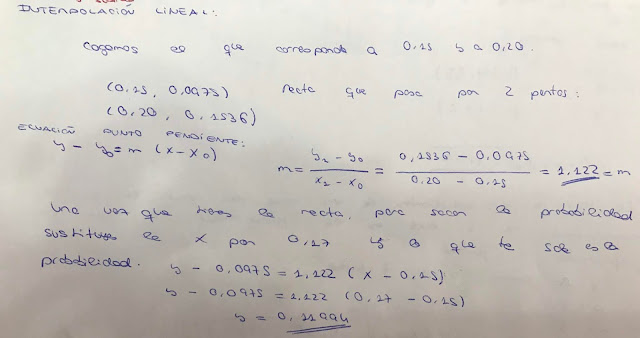 INTERPOLACIÓN LINEAL:
Cogemos el que corresponde a 0,15 y a 0,20.
(0,15, 0,0975) recta que pasa por 2 puntos:
(0,20, 0,1536)
ECUACIÓN PUNTO PENDIENTE:
y - y0 = m (x - x0)
m = (y1 - y0) / (x1 - x0) = (0,1536 - 0,0975) / (0,20 - 0,15) = 1,122 = m
Una vez que tienes la recta, para sacar la probabilidad
sustituyes la x por 0,17 y lo que te sale es la
probabilidad. y - 0,0975 = 1,122 (x - 0,15)
y - 0,0975 = 1,122 (0,17 - 0,15)
y = 0,11994